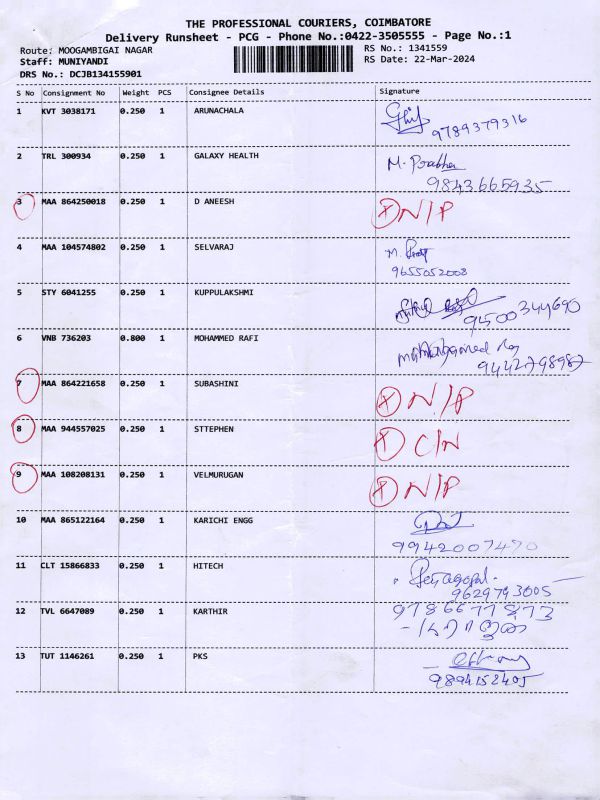 THE PROFESSIONAL COURIERS, COIMBATORE
Delivery Runsheet - PCG - Phone No.:0422-3505555 - Page No.:1
Route: MOOGAMBIGAI NAGAR RS No.: 1341559
Staff: MUNIYANDI RS Date: 22-Mar-2024
DRS No.: DCJB134155901
S No Consignment No Weight PCS Consignee Details Signature
1 KVT 3038171 0.250 1 ARUNACHALA
9789379316
2 TRL 300934 0.250 1 GALAXY HEALTH M. Prabha
9843665935
3 MAA 864250018 0.250 1 D ANEESH X N/P
4 MAA 104574802 0.250 1 SELVARAJ M.
9655052008
5 STY 6041255 0.250 1 KUPPULAKSHMI
94500344690
6 VNB 736203 0.800 1 MOHAMMED RAFI
9442798987
7 MAA 864221658 0.250 1 SUBASHINI X N/P
8 MAA 944557025 0.250 1 STTEPHEN X C/N
9 MAA 108208131 0.250 1 VELMURUGAN X N/P
10 MAA 865122164 0.250 1 KARICHI ENGG
9942007470
11 CLT 15866833 0.250 1 HITECH
9629793005
12 TVL 6647089 0.250 1 KARTHIR 9786677873
13 TUT 1146261 0.250 1 PKS
9894152405